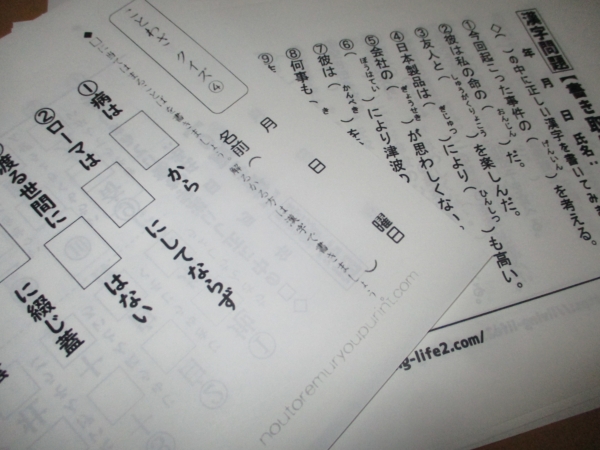 漢字問題【書き取
年 月 日 氏名:
◇( )の中に正しい漢字を書いてみま
①今回起こった事件の(げんいん)を考える。
②彼は私の命の(おんじん)だ。
③友人と(しゅうがくりょこう)を楽しんだ。
④日本製品は(ぎじゅつ)により(ひんしつ)も高い。
⑤会社の(ぎょうせき)が思わしくない
⑥(ぼうはてい)により津波の
⑦彼は(かんぺき)を
⑧何事も(き
⑨
g-life2.com/
ことわざ クイズ ④
月 日 曜日
名前( )
◆□に当てはまることばを書きましょう
方は漢字で書きましょう
①病は□から
②ローマは□にしてならず
渡る世間に□はない
に綴じ蓋
noutoremuryoupurint.com